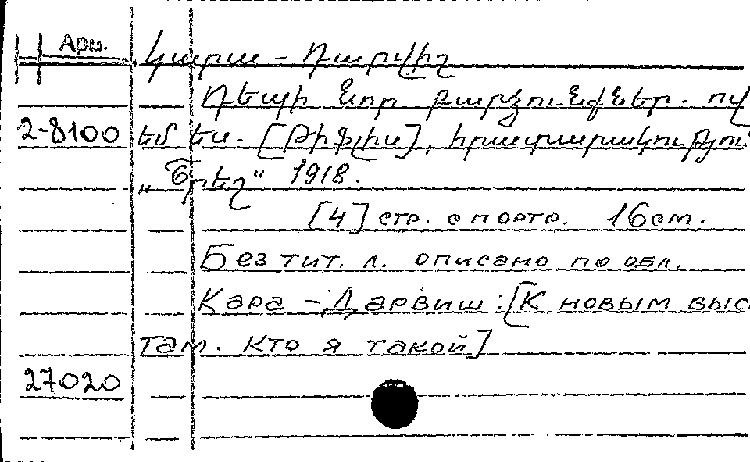 Арм.
Կարա - Դարվիշ
Դեպի նոր բարձունքներ. ով
2-8100 եմ ես. [Թիֆլիս], հրատարակություն
„Երեզ“ 1918.
[4] стр. с портр. 16см.
Без тит. л. описано по обл.
Кара - Дарвиш: [К новым выс
там. Кто я такой]
27020